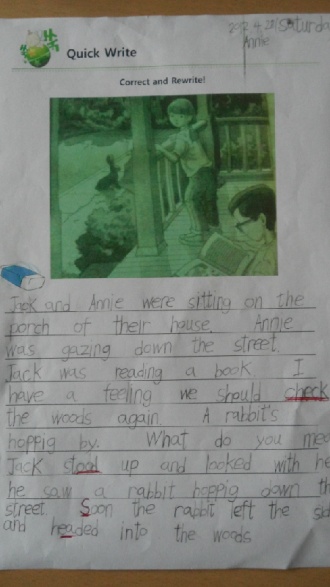 2012.4.28/Saturda
Annie
Quick Write
Correct and Rewrite!
Jack and Annie were sitting on the
porch of their house. Annie
was gazing down the street.
Jack was reading a book I
have a feeling we should check
the woods again. A rabbit's
hoppig by. What do you mea
Jack stood up and looked with he
he saw a rabbit hoppig down th
street. Soon the rabbit left the sid
and headed into the woods